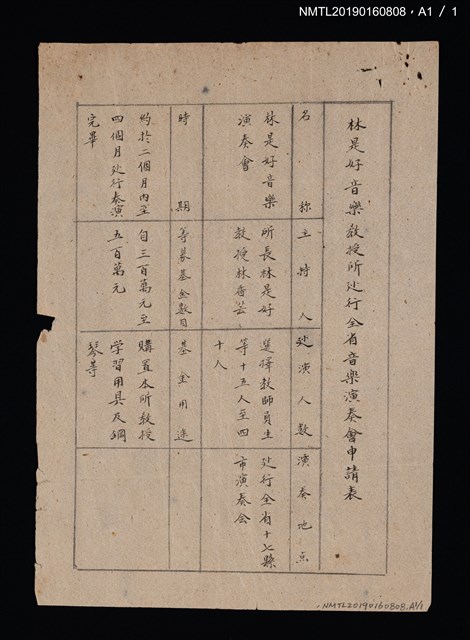 NMTL20190160808，A1 / 1
林是好音樂教授所处行全省音樂演奏會申請表
名稱
主持人
处演人數
演奏地点
林是好音樂
演奏會
所長林是好
教授林香芸
選擇教師員生
等十五人至四
十人
处行全省十七縣
市演奏会
時期
等募基金數目
基金用途
約於二個月內至
四個月处行奏演
完畢
自三百萬元至
五百萬元
購置本所教授
学習用具及鋼
琴等
NMTL20190160808.A1/1